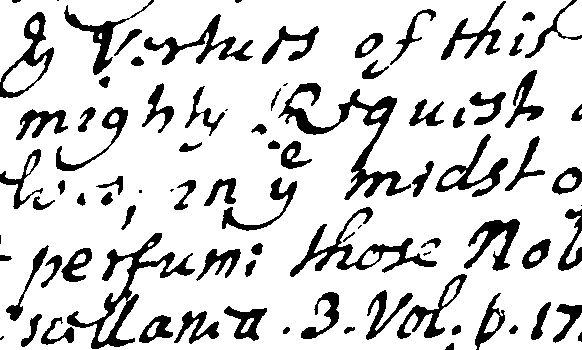 Vertues of this
mighty Request
in yᵉ midst
perfume those Nob
iscellania. 3. Vol. p. 17